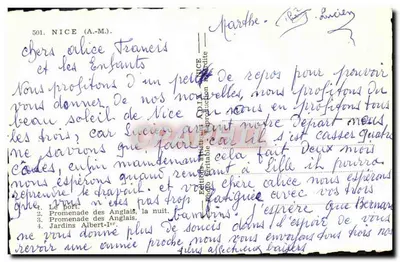 501. NICE (A.-M.)
Marthe. Lucien
chers alice Francis
et les Enfants
Nous profitons d'un petit de repos pour pouvoir
vous donner de nos nouvelles, nous profitons du
beau soleil de Nice ou nous en profitons tous
les trois, car avant notre Départ nous
ne savions que faire car il s'est casser quatre
cotes, enfin maintenant cela fait Deux mois
nous espérons quand rentrant à Lille il pourra
reprendre le travail. et vous chère alice nous espérons
que vous n'etes pas trop fatiguée avec vos trois
bambins. J'espère que Bernard
ne vous donne plus de soucis dans l'espoir de vous
revoir une année proche nous vous envoyons tous trois nos
plus affectueux baisers
1. Le port.
2. Promenade des Anglais, la nuit.
3. Promenade des Anglais.
4. Jardins Albert-Ier.